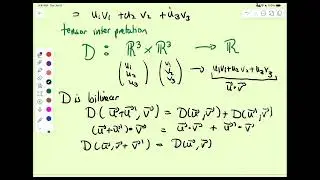 = u₁v₁ + u₂v₂ + u₃v₃
tensor interpretation
D : ℝ³ × ℝ³ → ℝ
(u₁ u₂ u₃) (v₁ v₂ v₃) → u₁v₁ + u₂v₂ + u₃v₃
u⃗·v⃗
D is bilinear
D(u⃗+u⃗', v⃗) = D(u⃗, v⃗) + D(u⃗', v⃗)
(u⃗+u⃗')·v⃗ = u⃗·v⃗ + u⃗'·v⃗
D(u⃗, v⃗+v⃗') = D(u⃗, v⃗)